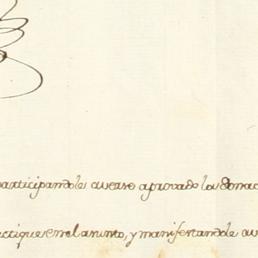 participandole averse aprovado la donac
ctique en el asunto, y manifestandole av